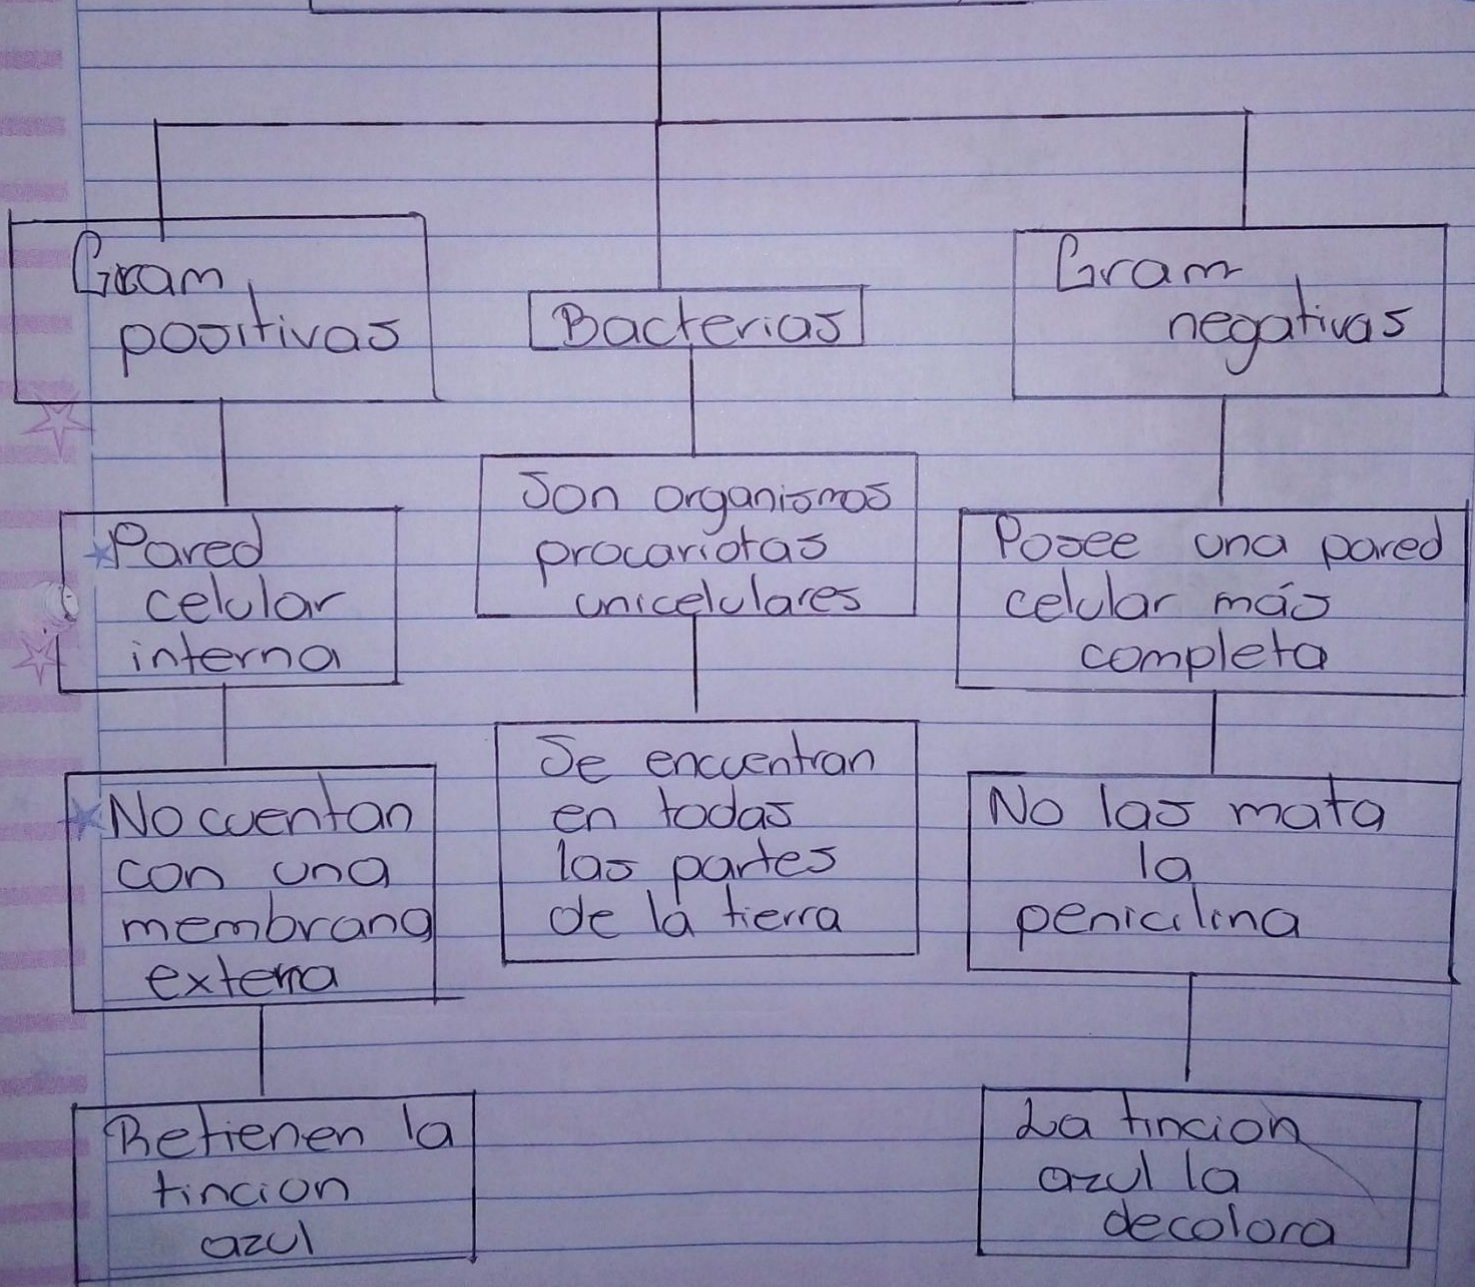 Gram
positivas
Pared
celular
interna
No cuentan
con una
membrana
externa
Retienen la
tincion
azul
Bacterias
Son organismos
procariotas
unicelulares
Se encuentran
en todas
las partes
de la tierra
Gram
negativas
Posee una pared
celular más
completa
No las mata
la
penicilina
La tincion
azul la
decolora